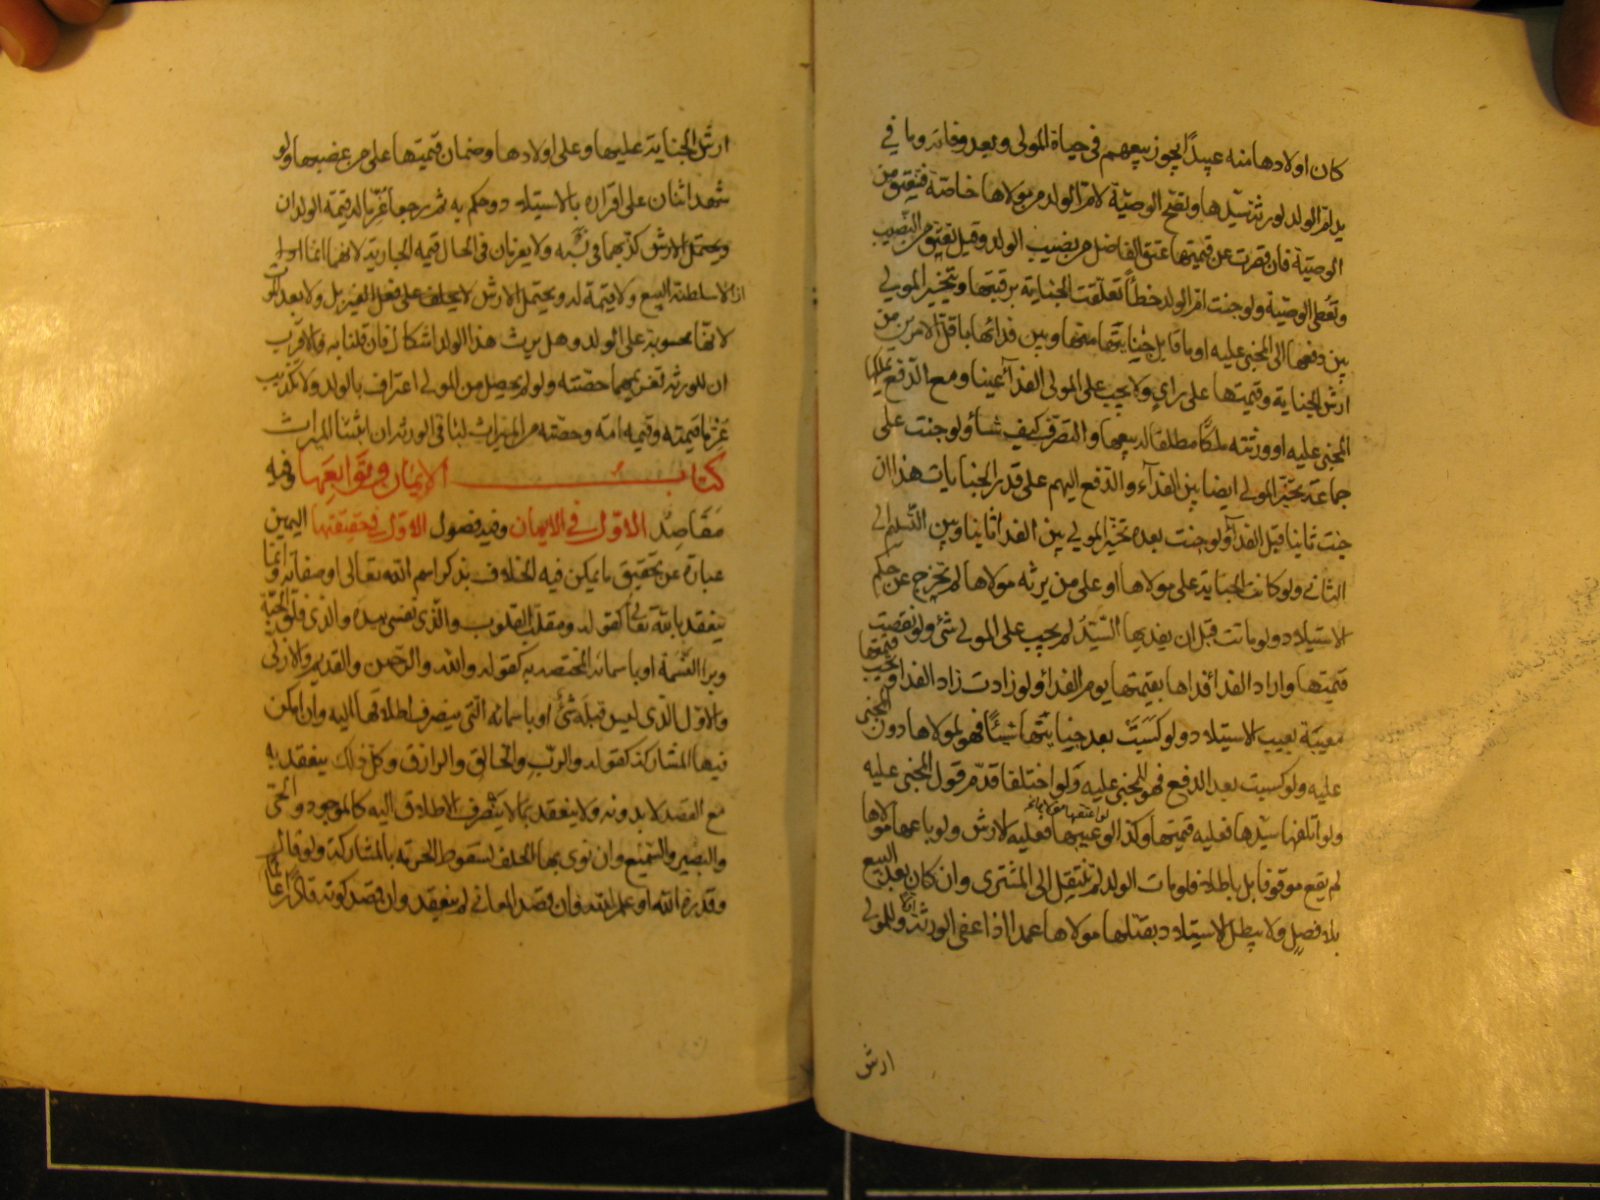 كان اولادها منه عبيدًا يجوز بيعهم فى حياة المولى وبعد وفاته وما فى
يد امّ الولد لورثة سيّدها وتصحّ الوصيّة لامّ الولد من مولاها خاصّة فتعتق من
الوصيّة فان قصرت عن قيمتها عتق الفاضل من نصيب الولد وقيل تعتق من النصيب
وتعطى الوصيّة ولو جنت امّ الولد خطأً تعلّقت الجناية برقبتها ويتخيّر المولى
بين دفعها الى المجنى عليه او ما قابل جنايتها منها وبين فدائها باقلّ الامرين من
ارش الجناية وقيمتها على راي ولا يجب على المولى الفدآء عينا ومع الدفع يملكها
المجنى عليه او ورثته ملكًا مطلقا له بيعها والتصرف كيف شاء ولو جنت على
جماعة تخيّر المولى ايضا بين الفدآء والدفع اليهم على قدر الجنايات هذا ان
جنت ثانيا قبل الفدآء ولو جنت بعده تخيّر المولى بين الفدا ثانيا وبين التسليم الى
الثانى ولو كانت الجناية على مولاها او على من يرثه مولاها لم تخرج عن حكم
الاستيلاد ولو ماتت قبل ان يفديها السّيّد لم يجب على المولى شئ ولو نقصت
قيمتها واراد الفدا فداها بقيمتها يوم الفداء ولو زادت زاد الفدا ويجب قيمتها
معيبة بعيب الاستيلاد ولو كسبت بعد جنايتها شيئًا فهو لمولاها دون المجنى
عليه ولو كسبت بعد الدفع فهو للمجنى عليه ولو اختلفا قدّم قول المجنى عليه
ولو اتلفها سيّدها فعليه قيمتها وكذا لو عيبها فعليه الارش ولو باعها مولاها
لم يقع موقوفا بل باطلا فلو مات الولد لم تنتقل الى المشترى وان كان بعد البيع
بلا فصل ولا يبطل الاستيلاد بقتلها مولاها عمدا اذا عفى الورثة وللمولى
ارش
ارش الجناية عليها وعلى اولادها وضمان قيمتها على من غصبها ولو
شهد اثنان على اقراره بالاستيلاد وحكم به ثم رجعا غرّما له قيمة الولد ان
كذبهما فى نسبه ولا يغرمان فى الحال قيمة الجارية لانهما انما ازالا
سلطنة البيع ولا قيمة له ويحتمل الارش
لانها محسوبة على الولد وهل يرث هذا الولد اشكال فان قلنا به فالاقرب
ان للورثه تغريمهما حصّته ولو لم يحصل من المولى اعتراف بالولد ولا تكذيب
غرّما قيمته وقيمه امه وحصّته من الميراث لباقى الورثه ان اثبتنا الميراث
كتاب الايمان وتوابعها وفيه
مَقَاصِد الاوّل فى الايمان وفيه فصول الاوّل فى حقيقتها اليمين
عبارة عن تحقيق ما يمكن فيه الخلاف بذكر اسم الله تعالى او صفاته وانّما
ينعقد بالله تعالى كقوله ومقلّب القلوب والّذى نفسى بيده والذى فلق الحبّة
وبرا النسمة او باسمائه المختصه به كقوله والله والرّحمن والقديم والازلى
والاوّل الّذى ليس قبله شئ او باسمائه التى ينصرف اطلاقها اليه وان امكن
فيها المشاركة كقوله والربّ والخالق والرازق وكلّ ذلك ينعقد به
مع القصد لا بدونه ولا ينعقد بما لا ينصرف الاطلاق اليه كالموجود والحىّ
والبصير والسّميع وان نوى بها الحلف لسقوط الحرمة بالمشاركة ولو قال
وقدرة الله او علم الله فان قصد المعانى لم ينعقد وان قصد كونه قادرًا عالمًا